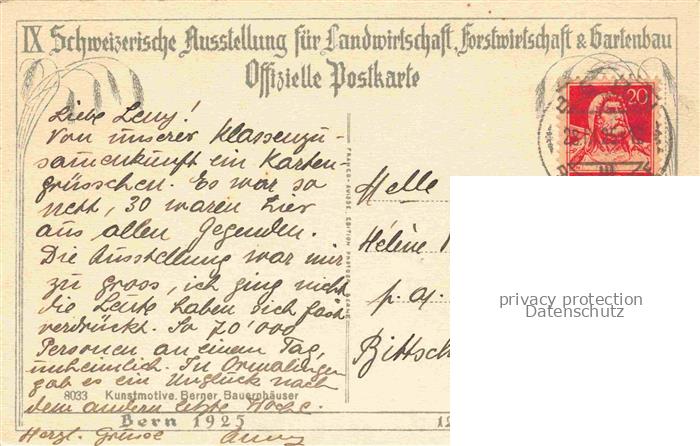 IX Schweizerische Ausstellung für Landwirtschaft, Forstwirtschaft & Gartenbau
Offizielle Postkarte
20
Liebe Leny!
Von unserer Klassenzu-
sammenkunft ein Karten-
grüsschen. Es war so
nett, 30 waren hier
aus allen Gegenden.
Die Ausstellung war mir
zu gross, ich ging nicht
die Leute haben sich fast
verdrückt. So 70'000
Personen an einem Tag,
unheimlich. In Ormalingen
gab es ein Unglück nach
dem andern letzte Woche.
Herzl. Grüsse
8033 Kunstmotive. Berner Bauernhäuser
Bern 1925
FRANCO-SUISSE EDITION PHOTOGR. BERNE
Melle
Hélène
p. a.
Bittsch
privacy protection
Datenschutz